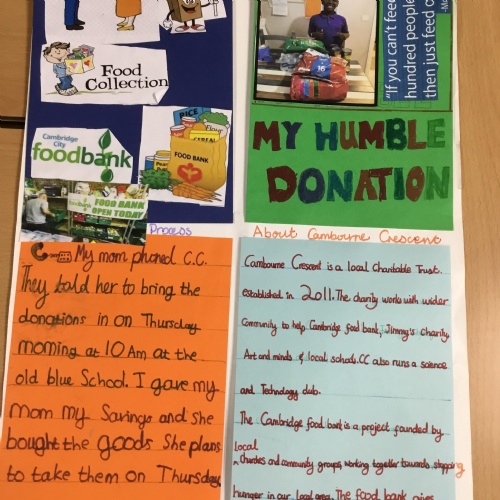 Food
Collection
Cambridge
City
foodbank
RICE
Flour
CEREAL
FOOD
BANK
FOOD BANK
OPEN TODAY
"If you can't feed
hundred people
then just feed
MY HUMBLE
DONATION
Process
My mom phoned C.C.
They told her to bring the
donations in on Thursday
morning at 10 Am at the
old blue School. I gave my
mom my Savings and she
bought the goods She plans
to take them on Thursday
About Cambourne Crescent
Cambourne Crescent is a local Charitable Trust.
established in 2011. The charity works with wider
Community to help Cambridge food bank, Jimmy's charity
Art and minds & local schools. CC also runs a science
and Technology club.
The Cambridge food bank is a project founded by
local
Churches and community groups, working together towards stopping
hunger in our local area. The food bank gives